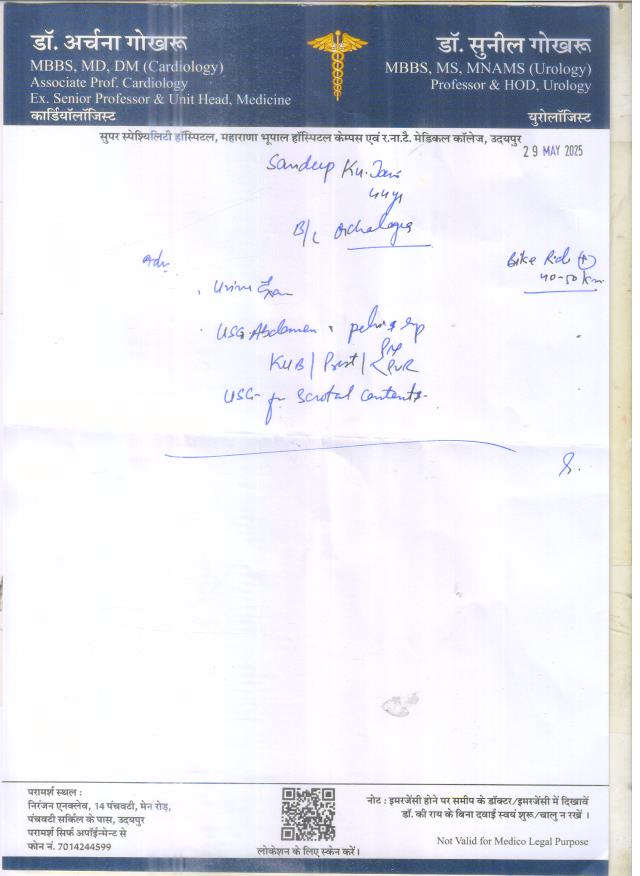 डॉ. अर्चना गोखरू
MBBS, MD, DM (Cardiology)
Associate Prof. Cardiology
Ex. Senior Professor & Unit Head, Medicine
कार्डियॉलाजिस्ट
डॉ. सुनील गोखरू
MBBS, MS, MNAMS (Urology)
Professor & HOD, Urology
युरोलॉजिस्ट
सुपर स्पेश्यिलिटी हॉस्पिटल, महाराणा भूपाल हॉस्पिटल केम्पस एवं र.ना.टै. मेडिकल कॉलेज, उदयपुर
29 MAY 2025
Sandeep Ku. Jain
44y
B/L Orchalgia
Bike Ride (+)
40-50 km
Adv.
Urine Exam
USG Abdomen pelvis
KUB / Prost / PVR
USG- for Scrotal Contents.
परामर्श स्थल :
निरंजन एनक्लेव, 14 पंचवटी, मेन रोड़,
पंचवटी सर्किल के पास, उदयपुर
परामर्श सिर्फ अपॉईन्मेन्ट से
फोन नं. 7014244599
लोकेशन के लिए स्केन करें।
नोट : इमरजेंसी होने पर समीप के डॉक्टर/इमरजेंसी में दिखावें
डॉ. की राय के बिना दवाई स्वयं शुरू/चालु न रखें ।
Not Valid for Medico Legal Purpose